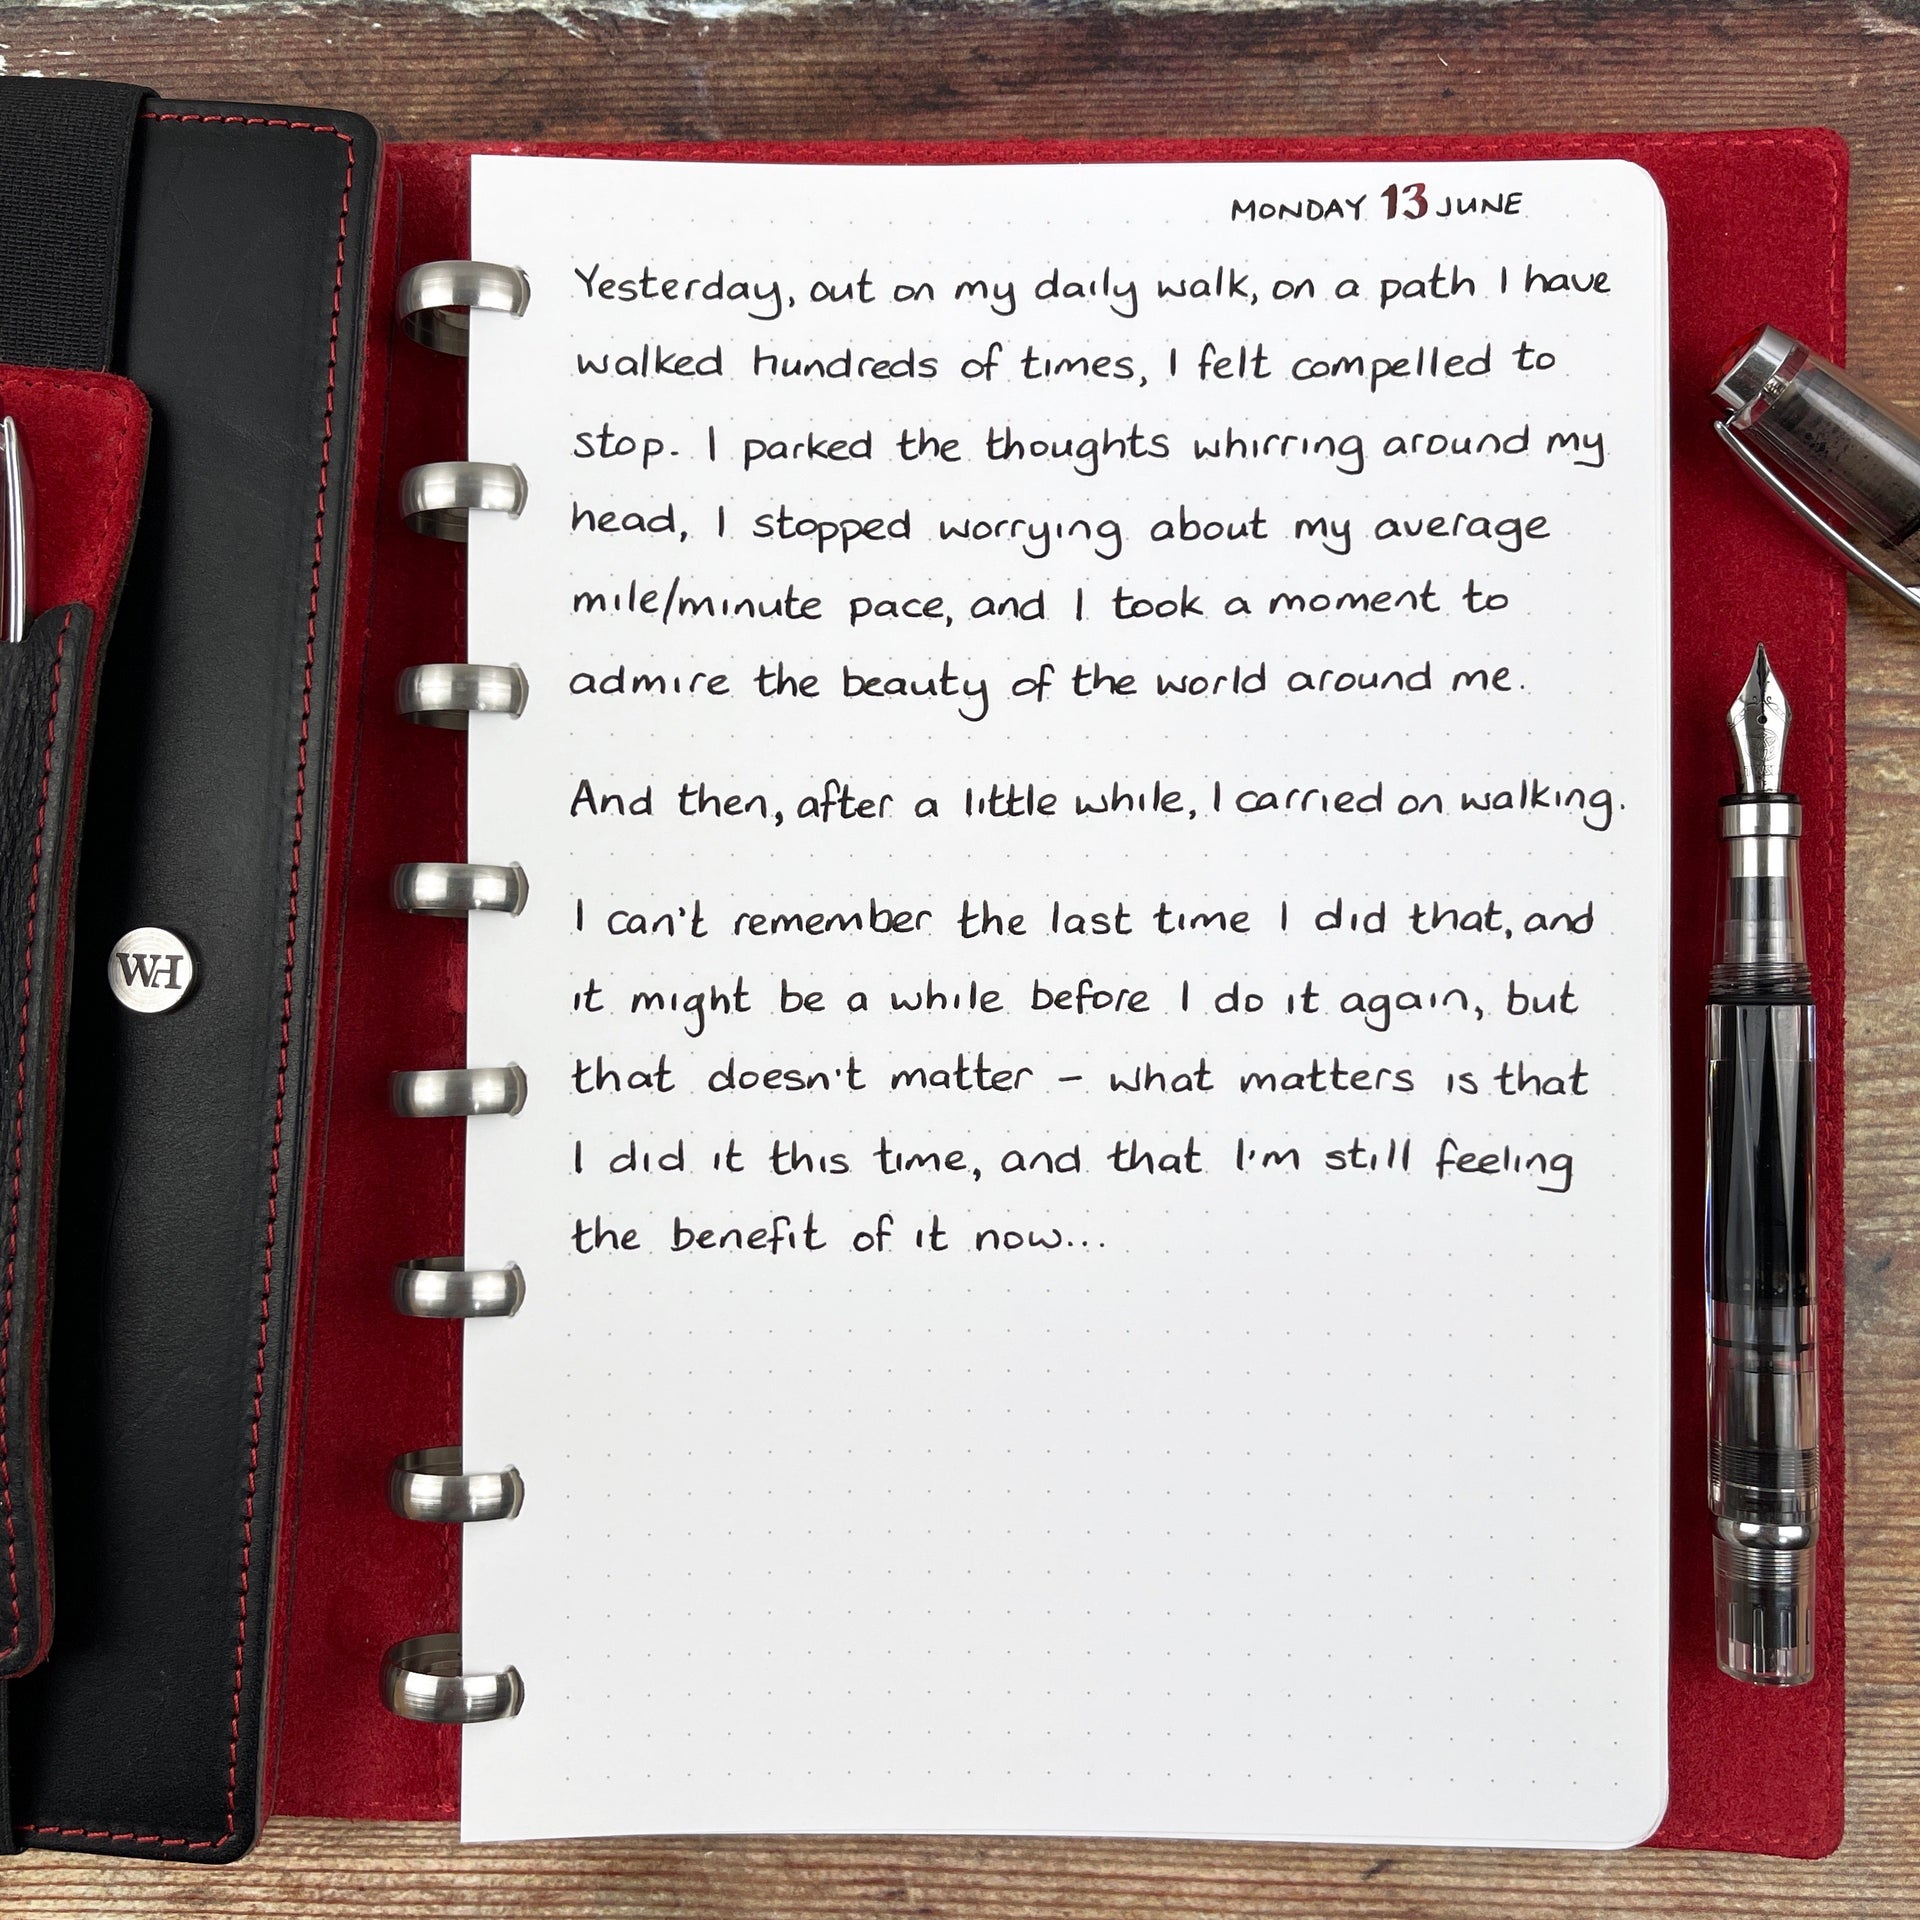 MONDAY 13 JUNE
Yesterday, out on my daily walk, on a path I have
walked hundreds of times, I felt compelled to
stop. I parked the thoughts whirring around my
head, I stopped worrying about my average
mile/minute pace, and I took a moment to
admire the beauty of the world around me.
And then, after a little while, I carried on walking.
I can't remember the last time I did that, and
it might be a while before I do it again, but
that doesn't matter – what matters is that
I did it this time, and that I'm still feeling
the benefit of it now...
WH